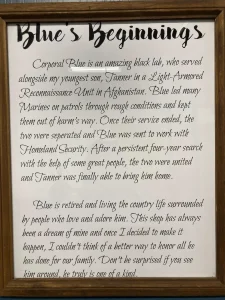 Blue's Beginnings
Corporal Blue is an amazing black lab, who served
alongside my youngest son, Tanner in a Light-Armored
Reconnaissance Unit in Afghanistan. Blue led many
Marines on patrols through rough conditions and kept
them out of harm's way. Once their service ended, the
two were seperated and Blue was sent to work with
Homeland Security. After a persistent four-year search
with the help of some great people, the two were united
and Tanner was finally able to bring him home.
Blue is retired and living the country life surrounded
by people who love and adore him. This shop has always
been a dream of mine and once I decided to make it
happen, I couldn't think of a better way to honor all he
has done for our family. Don't be surprised if you see
him around, he truly is one of a kind.